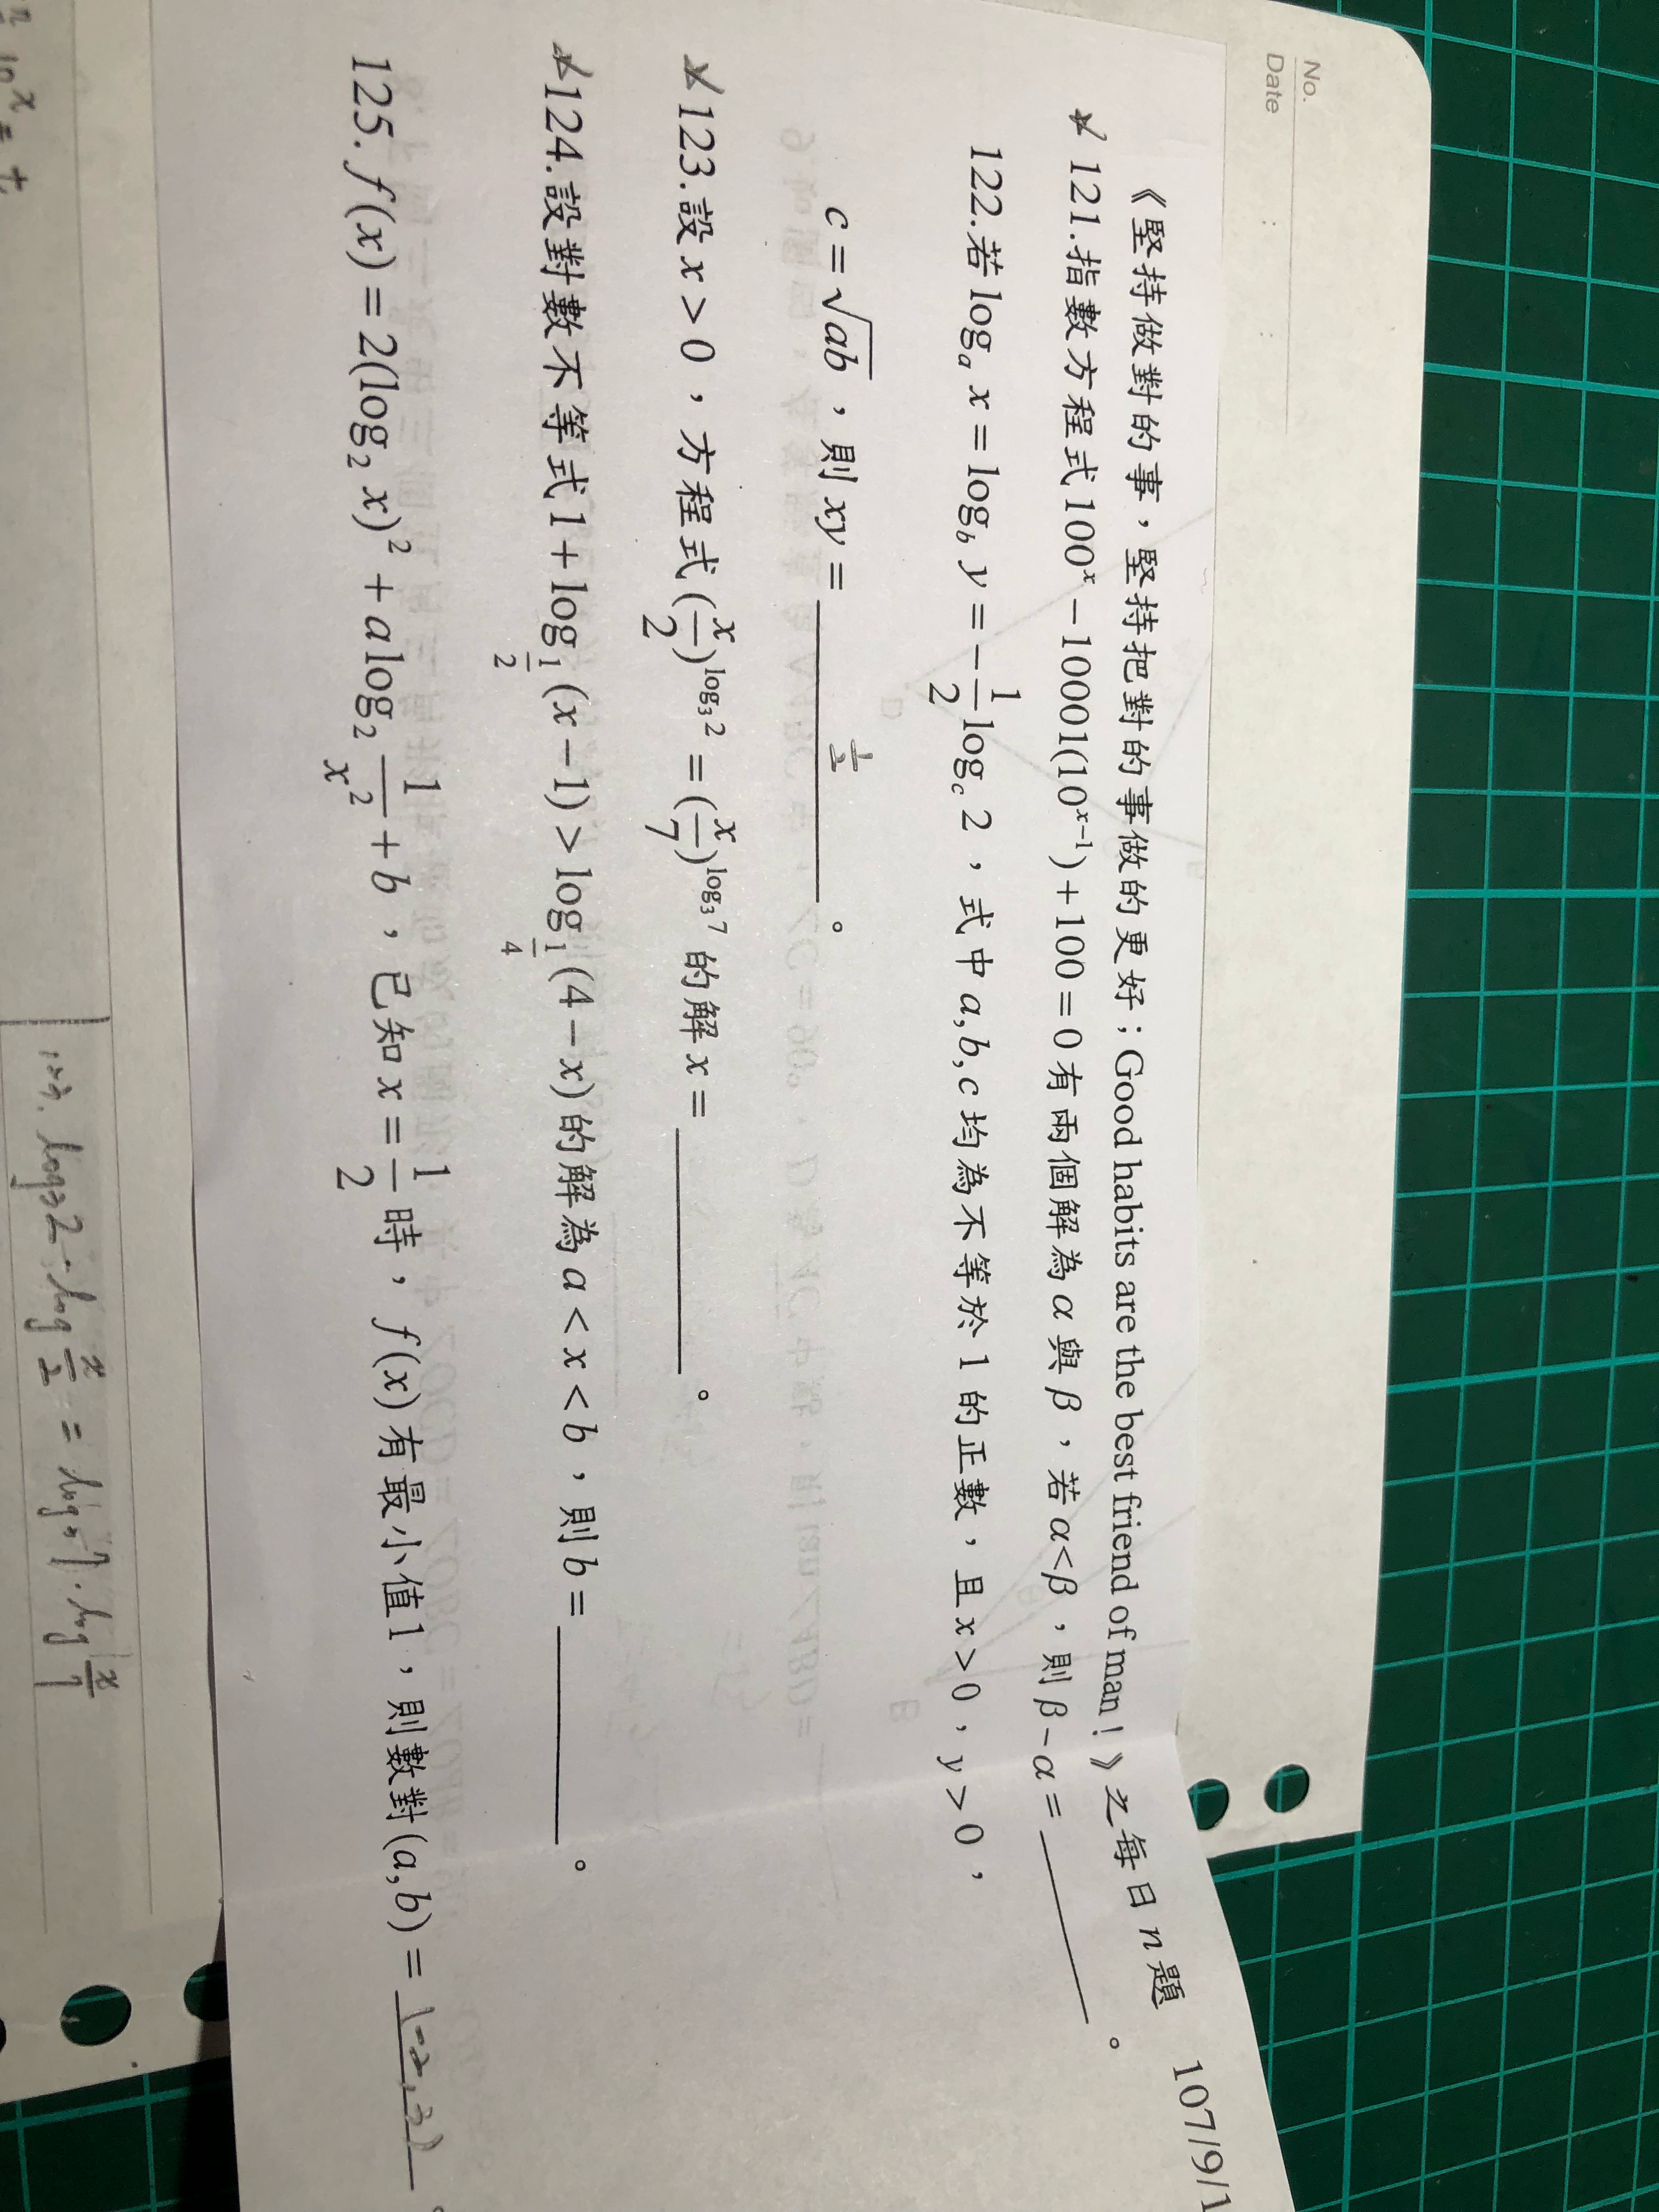 No.
Date : :
《堅持做對的事，堅持把對的事做的更好；Good habits are the best friend of man！》之每日 n 題 107/9/1
121.指數方程式 100^x − 10001(10^{x−1}) + 100 = 0 有兩個解為 α 與 β，若 α<β，則 β−α = ______。
122.若 log_a x = log_b y = −\frac{1}{2} log_c 2，式中 a, b, c 均為不等於 1 的正數，且 x > 0，y > 0，
c = √(ab)，則 xy = ___\frac{1}{2}___。
123.設 x > 0，方程式 (\frac{x}{2})^{log_3 2} = (\frac{x}{7})^{log_3 7} 的解 x = ______。
124.設對數不等式 1 + log_{\frac{1}{2}} (x − 1) > log_{\frac{1}{4}} (4 − x) 的解為 a < x < b，則 b = ______。
125. f(x) = 2(log_2 x)^2 + a log_2 \frac{1}{x^2} + b，已知 x = \frac{1}{2} 時，f(x) 有最小值 1，則數對 (a, b) = (-2, 3)。
ln x =
123. log_3 2 · log \frac{x}{2} = log_3 7 · log \frac{x}{7}